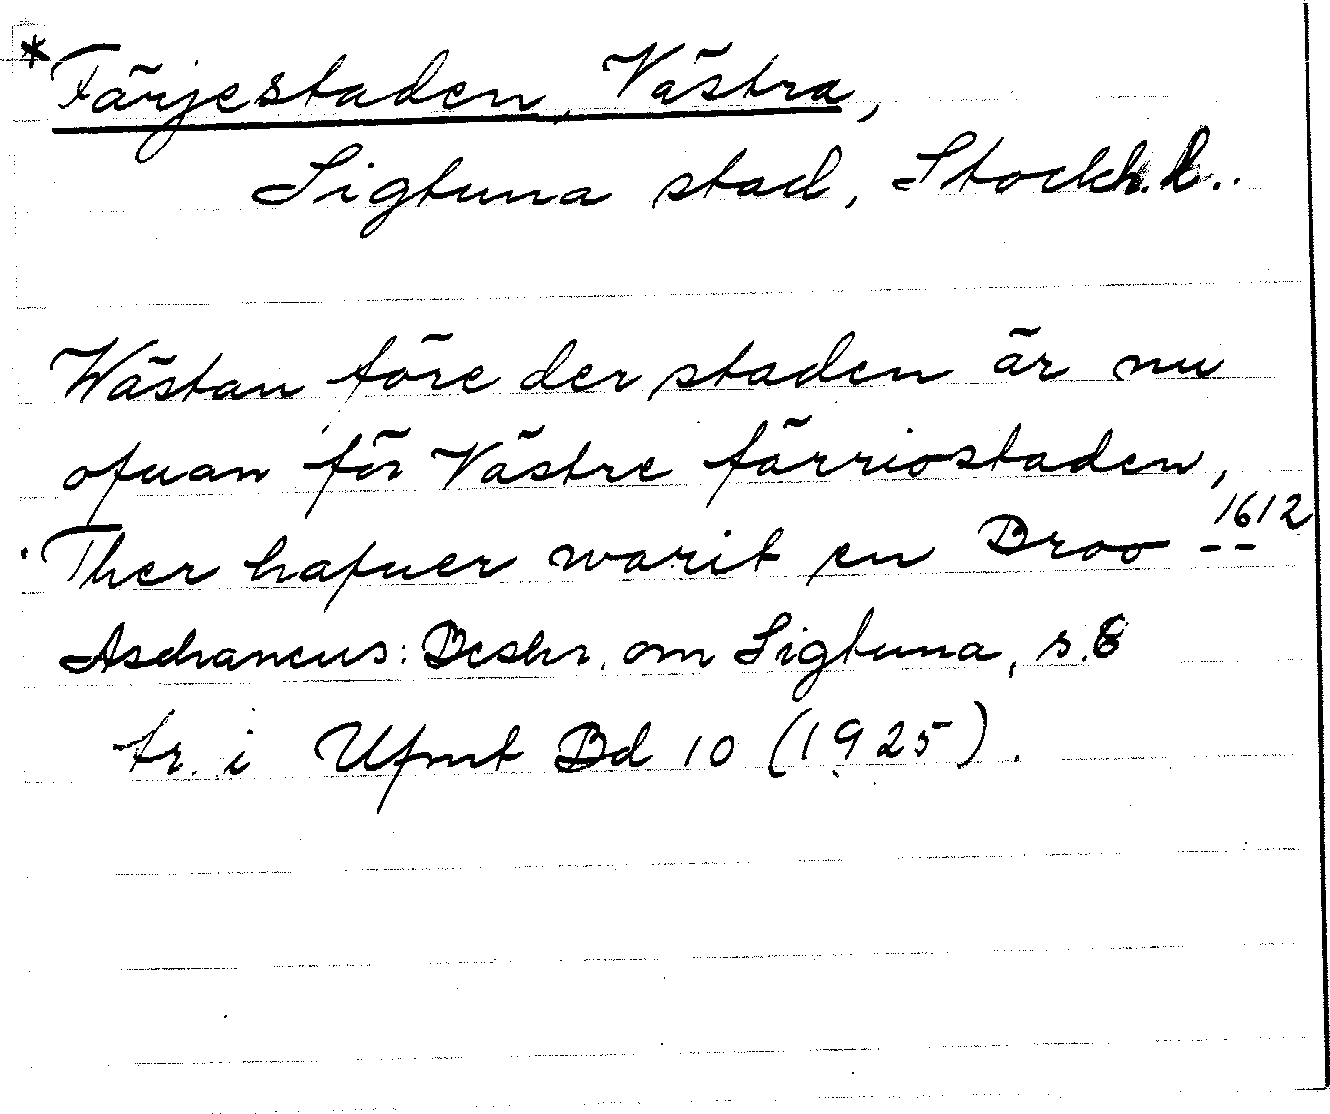 * Färjestaden, Västra,
Sigtuna stad, Stockh.l..
Wästan före der staden är nu
ofuan för Västre färriostaden,
Ther hafuer warit en Broo -- 1612
Aschaneus: Beskr. om Sigtuna, s.8
tr. i Ufmt Bd 10 (1925).